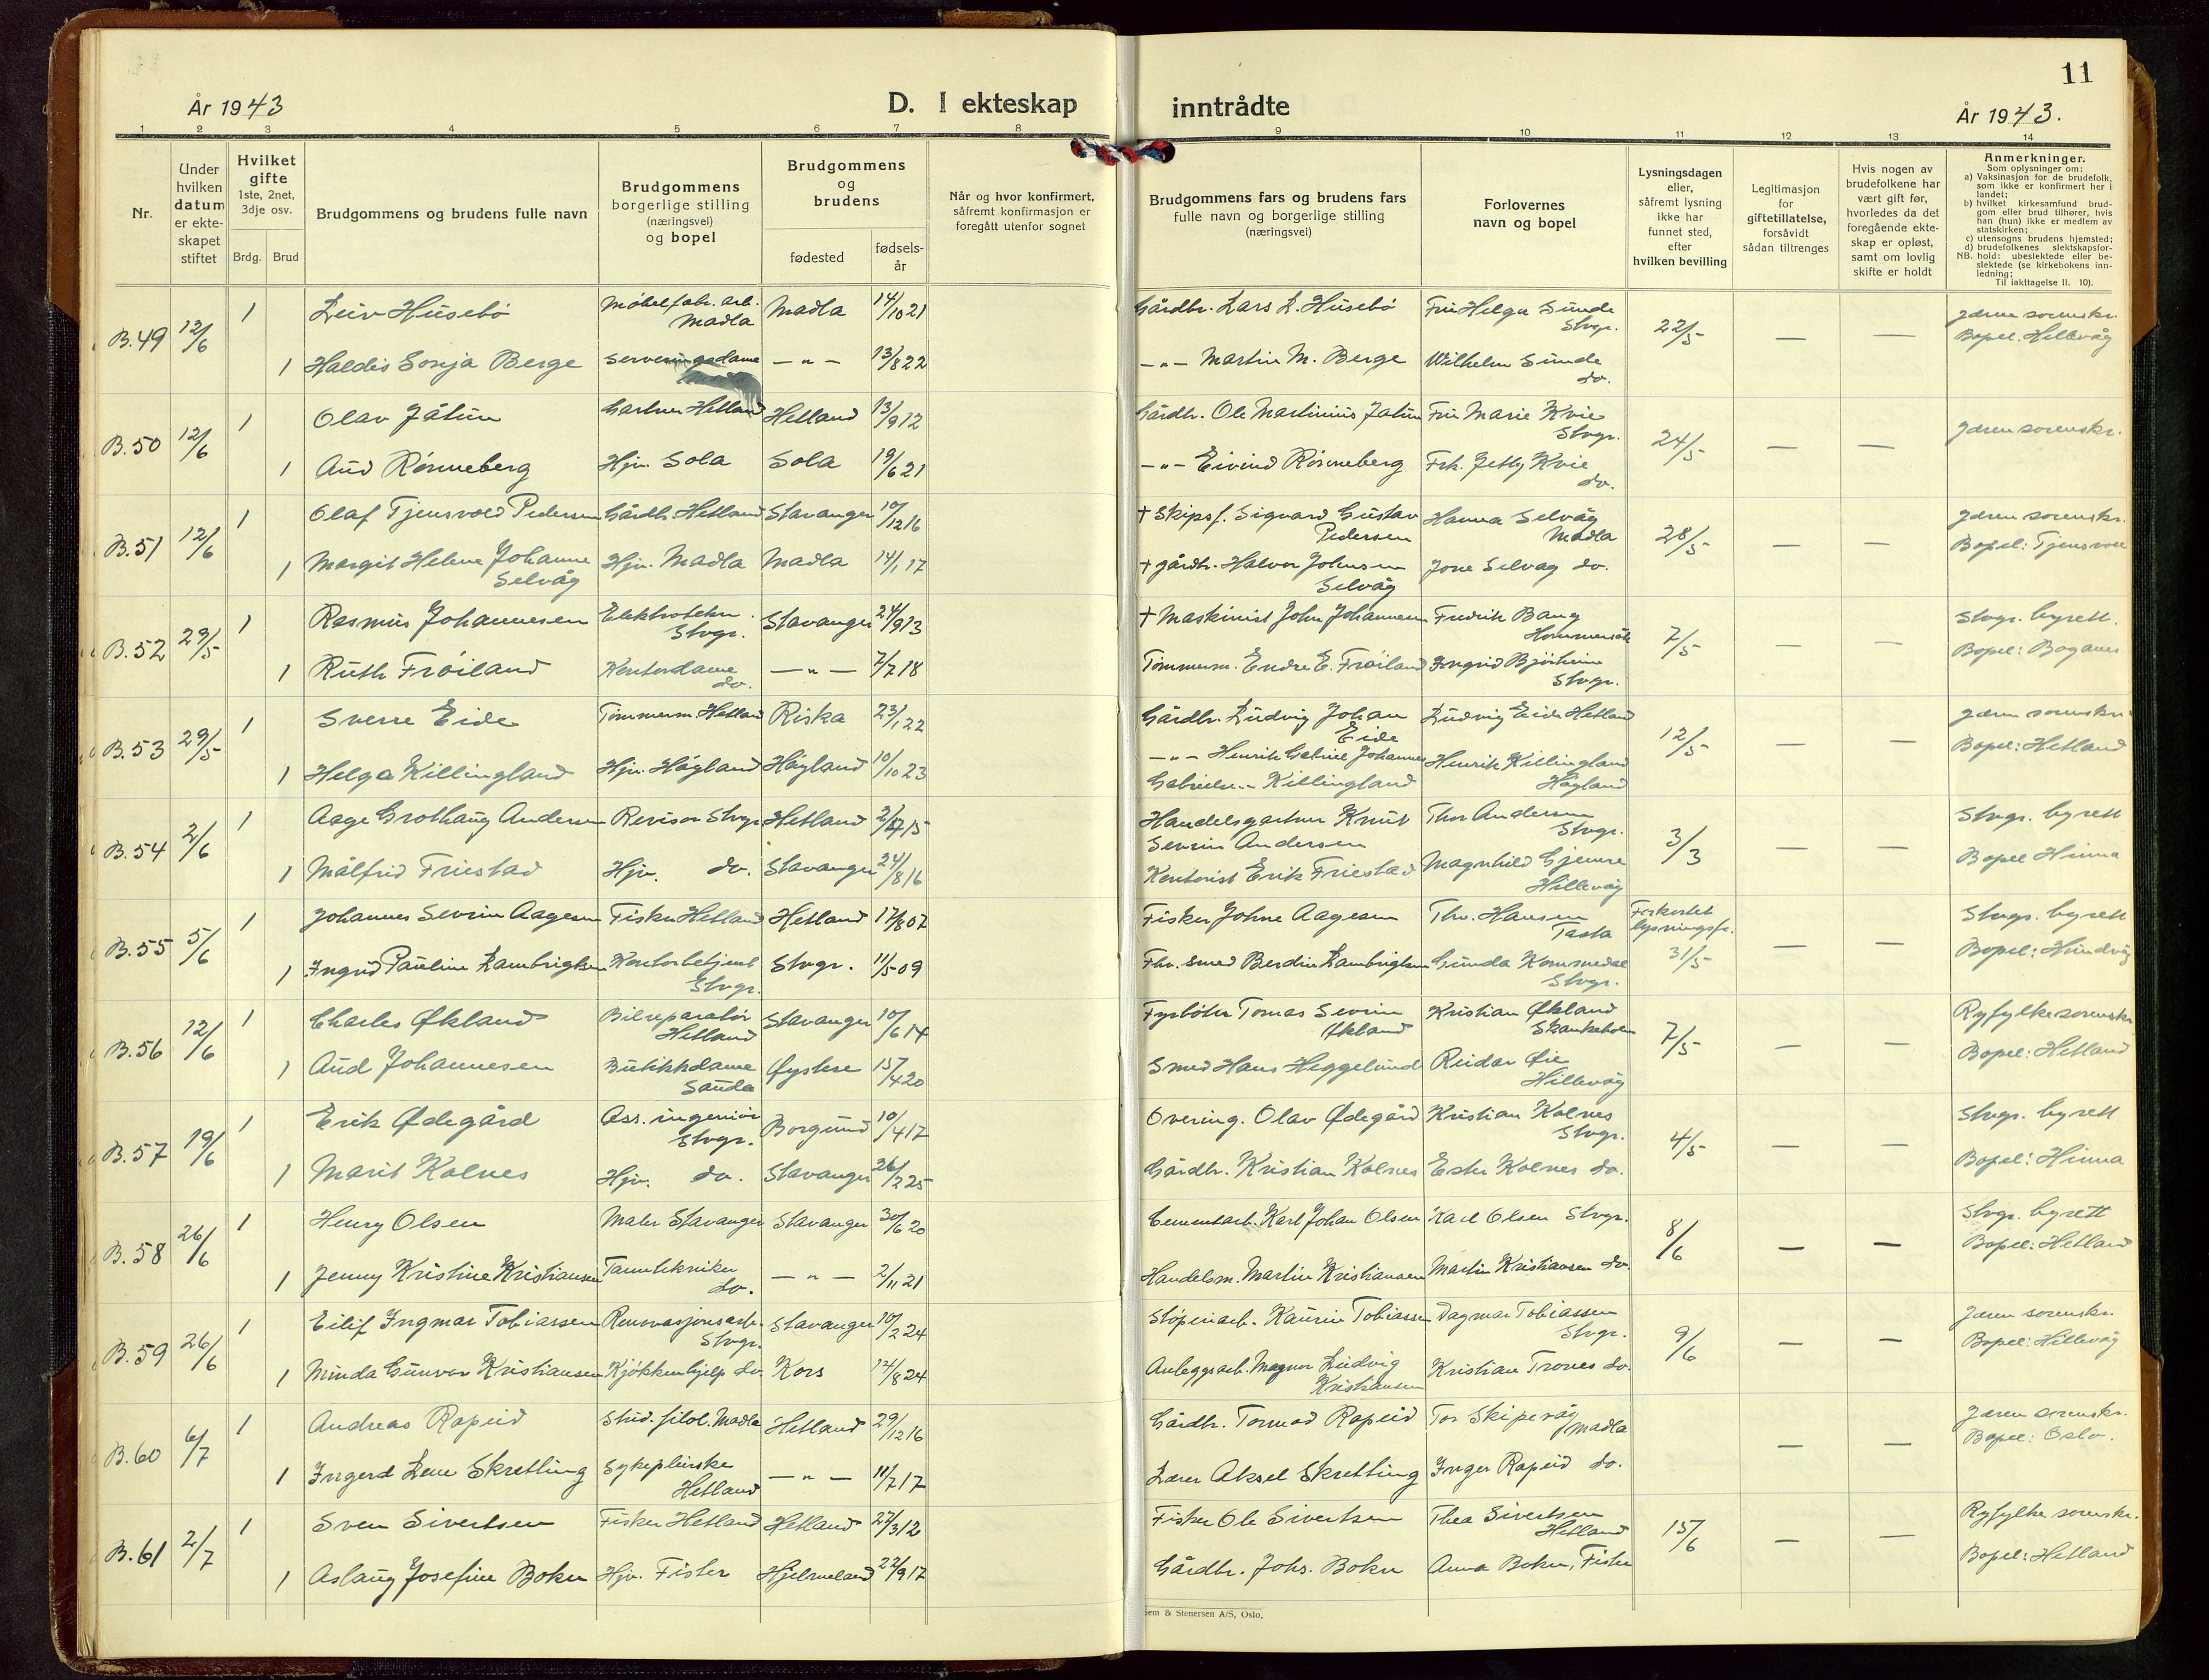 11
År 1943
D. I ekteskap inntrådte
År 1943.
1 2 3 4 5 6 7 8 9 10 11 12 13 14
Nr.
Under hvilken datum er ekteskapet stiftet
Hvilket gifte
1ste, 2net, 3dje osv.
Brdg. Brud
Brudgommens og brudens fulle navn
Brudgommens borgerlige stilling (næringsvei) og bopel
Brudgommens og brudens
fødested
fødselsår
Når og hvor konfirmert, såfremt konfirmasjon er foregått utenfor sognet
Brudgommens fars og brudens fars fulle navn og borgerlige stilling (næringsvei)
Forlovernes navn og bopel
Lysningsdagen eller, såfremt lysning ikke har funnet sted, efter hvilken bevilling
Legitimasjon for giftetillatelse, forsåvidt sådan tiltrenges
Hvis nogen av brudefolkene har vært gift før, hvorledes da det foregående ekteskap er opløst, samt om lovlig skifte er holdt
Anmerkninger.
Som oplysninger om:
a) Vaksinasjon for de brudefolk, som ikke er konfirmert her i landet;
b) hvilket kirkesamfund brudgom eller brud tilhører, hvis han (hun) ikke er medlem av statskirken;
c) utensogns brudens hjemsted;
d) brudefolkenes slektskapsforhold: ubeslektede eller beslektede (se kirkebokens innledning;
NB. Til iakttagelse II. 10).
B.49 12/6 1 Leiv Húsebó Møbelfabr. arb. Madla Madla 14/10 21 Gårdbr. Lars L. Húsebó Frú Helga Súnde Stvgr. 22/5 — Jæren sorenskr.
1 Haldis Sonja Berge Serveringsdame — " — 13/8 22 — " — Martin M. Berge Wilhelm Súnde do. Bopel. Hillevåg
B.50 12/6 1 Olav Jåtún Gartner Hetland Hetland 13/9 12 Gårdbr. Ole Martiniús Jåtún Frú Marie Kvie Stvgr. 24/5 — — Jæren sorenskr.
1 Aúd Rónneberg Hjv. Sola Sola 19/6 21 — " — Eivind Rónneberg Frk. Jetty Kvie do.
B.51 12/6 1 Olaf Tjensvold Pedersen Gårdbr. Hetland Stavanger 10/12 16 † Skipsf. Sigvard Gústav Pedersen Hanna Selvåg Madla 28/5 — — Jæren sorenskr.
1 Margit Helene Johanne Selvåg Hjv. Madla Madla 14/1 17 † gårdbr. Halvor Johnsen Selvåg Jone Selvåg do. Bopel: Tjensvoll
B.52 29/5 1 Rasmús Johannesen Elektrotekn. Stvgr. Stavanger 24/9 13 † Maskinist John Johannesen Fredrik Bang Hommersåk 7/5 — Stvgr. byrett.
1 Rúth Fróiland Kontordame do. — " — 7/7 18 Tømmerm. Endre E. Fróiland Ingrid Bjørheim Stvgr. Bopel: Boganes
B.53 29/5 1 Sverre Eide Tømmerm. Hetland Riska 23/1 22 Gårdbr. Lúdvig Johan Eide Lúdvig Eide Hetland 12/5 — — Jæren sorenskr.
1 Helga Killingland Hjv. Høyland Høyland 10/10 23 — " — Henrik Gabriel Johannes Gabrielsen Killingland Henrik Killingland Høyland Bopel: Hetland
B.54 2/6 1 Aage Grothaúg Andersen Revisor Stvgr. Hetland 15 Handelsgartner Knút Sevrin Andersen Thor Andersen Stvgr. 3/3 — — Stvgr. byrett
1 Målfrid Friestad Hjv. do. Stavanger 24/8 16 Kontorist Erik Friestad Magnhild Gjemre Hillevåg Bopel Hinna
B.55 5/6 1 Johannes Sevrin Aagesen Fisker Hetland Hetland 17/8 07 Fisker Johne Aagesen Thv. Hansen Tasta Forkortet lysningsfr. 31/5 — — Stvgr. byrett
1 Ingrid Paúline Lambrigtsen Kontorbetjent Stvgr. Stvgr. 11/5 09 Fhv. smed Berdin Lambrigtsen Gúnda Stvgr. Bopel: Húndvåg
B.56 12/6 1 Charles Økland Bilreparatør Hetland Stavanger 10/6 14 Fyrbøter Tomas Sevrin Økland Kristian Økland Skankeholm 7/5 — — Ryfylke sorenskr.
1 Aúd Johannesen Bútikkdame Saúda Øystese 15/4 20 Smed Hans Heggelúnd Reidar Øie Hillevåg Bopel: Hetland
B.57 19/6 1 Erik Ødegård Ass. ingeniør Stvgr. Borgúnd 10/4 17 Overing. Olav Ødegård Kristian Kolnes Stvgr. 4/5 — — Stvgr. byrett
1 Marit Kolnes Hjv. do. Stavanger 26/2 25 Gårdbr. Kristian Kolnes Ester Kolnes do. Bopel: Hinna
B.58 26/6 1 Henry Olsen Maler Stavanger Stavanger 30/6 20 Cementarb. Karl Johan Olsen Karl Olsen Stvgr. 8/6 — — Stvgr. byrett
1 Jenny Kristine Kristiansen Tanntekniker do. — " — 2/11 21 Handelsm. Martin Kristiansen Martin Kristiansen do. Bopel: Hetland
B.59 26/6 1 Eilif Ingmar Tobiassen Renovasjonsarb. Stvgr. Stavanger 10/2 24 Støperiarb. Kaúrin Tobiassen Dagmar Tobiassen Stvgr. 9/6 — — Jæren sorenskr.
1 Minda Gúnvor Kristiansen Kjøkkenhjelp do. Kors 14/8 24 Anleggsarb. Magnor Lúdvig Kristiansen Kristian Trones do. Bopel: Hillevåg
B.60 6/7 1 Andreas Ropeid Stúd. filol. Madla Hetland 29/12 16 Gårdbr. Tormod Ropeid Tor Skipevåg Madla — — Jæren sorenskr.
1 Ingerd Lene Skretting Sykepleierske Hetland — " — 11/7 17 Lærer Aksel Skretting Inger Ropeid do. Bopel: Oslo.
B.61 2/7 1 Sven Sivertsen Fisker Hetland Hetland 27/3 12 Fisker Ole Sivertsen Thea Sivertsen Hetland 15/6 — — Ryfylke sorenskr.
1 Aslaúg Josefine Bokn Hjv. Fister Hjelmeland 22/9 17 Gårdbr. Johs. Bokn Anna Bokn, Fister Bopel: Hetland
Sem & Stenersen A/S, Oslo.